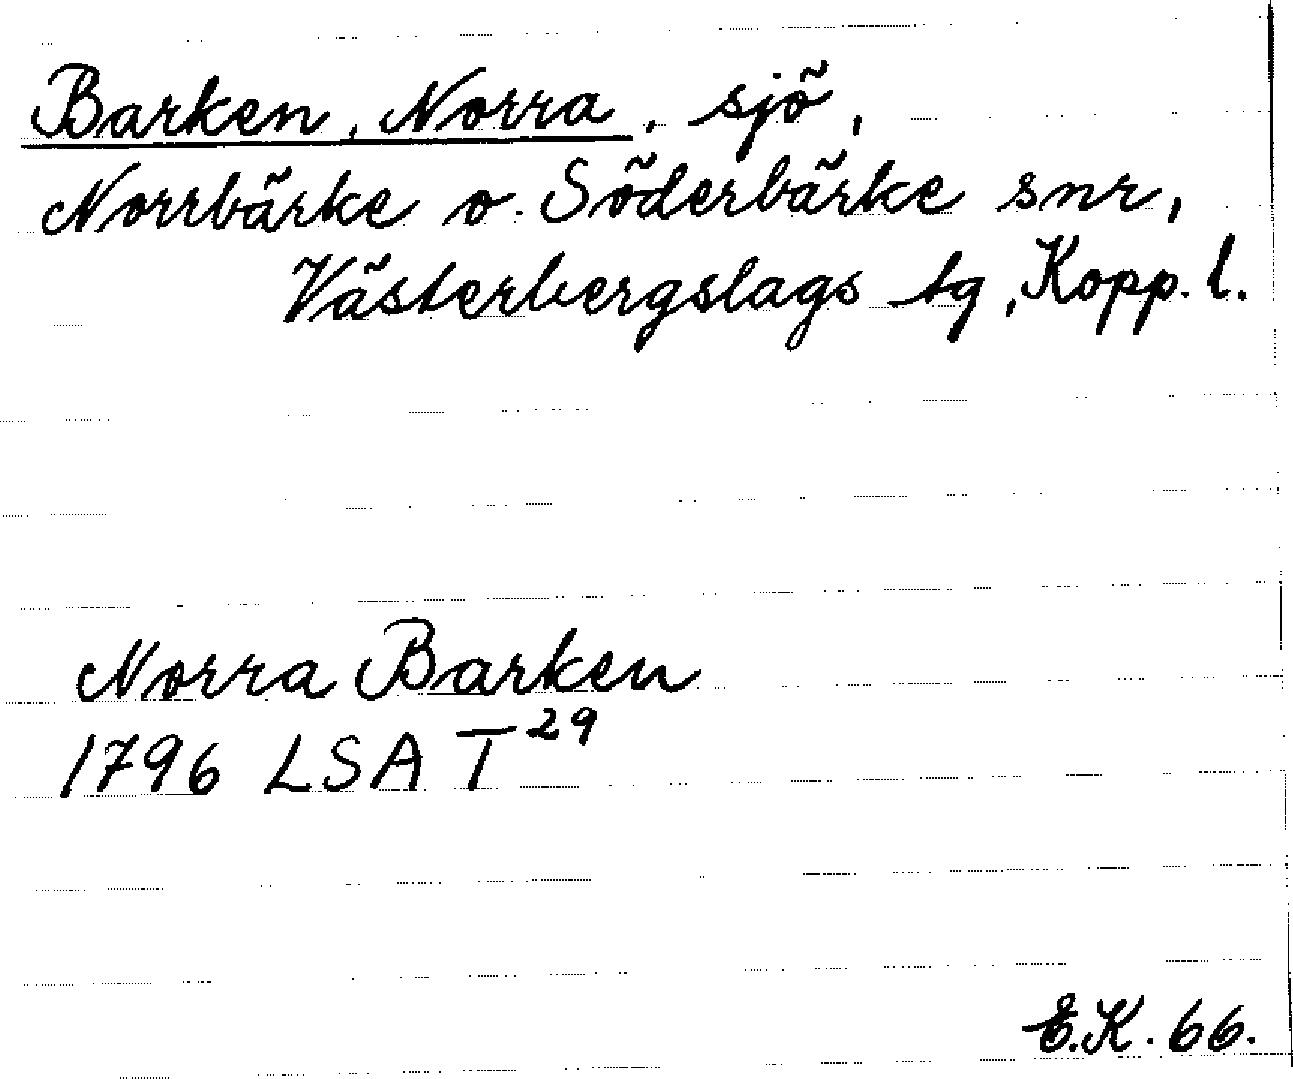 Barken, Norra, sjö,
Norrbärke o. Söderbärke snr,
Västerbergslags tg, Kopp. l.
Norra Barken
1796 LSA T 29
E.K. 66.